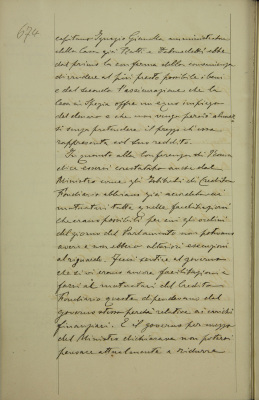 674
capitano Ignazio Gianotta amministratore
della Casa già Prati e Fabroletti, ebbe
dal primo la conferma della convenienza
di vendere al più presto possibile i beni
e dal secondo l'assicurazione che la
Casa in Spezia offre un equo impiego
del denaro e che non venga perciò
di senza pretendere il prezzo di cosa
rappresenta col suo reddito.
In quanto alla conferenza di Roma
dice essersi constatato anche dal
Ministro come gli Istituti di Credito
Fondiario abbiano già accordato ai
mutuatari tutte quelle facilitazioni
che erano possibili per cui gli ordini
del giorno del Parlamento non potevano
avere e non ebbero ulteriori esenzioni
al riguardo. Fece sentire al governo
che se vi erano ancora facilitazioni a
farsi ai mutuatari del Credito
Fondiario queste dipendevano dal
governo stesso perchè relative ai carichi
finanziari. E il governo per mezzo
del Ministro dichiarava non potersi
pensare attualmente a ridurre